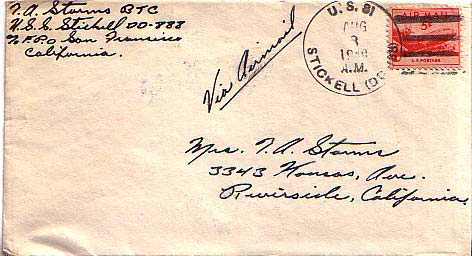 T.A. Storms BTC
U.S.S. Stickell DD-888
% F.P.O San Francisco
California.
Via Airmail
U.S.S.
AUG
3
A.M.
STICKELL (DD
AIR MAIL
5¢
U.S. POSTAGE
Mrs. T.A. Storms
3343 Kansas, Ave.
Riverside, California.